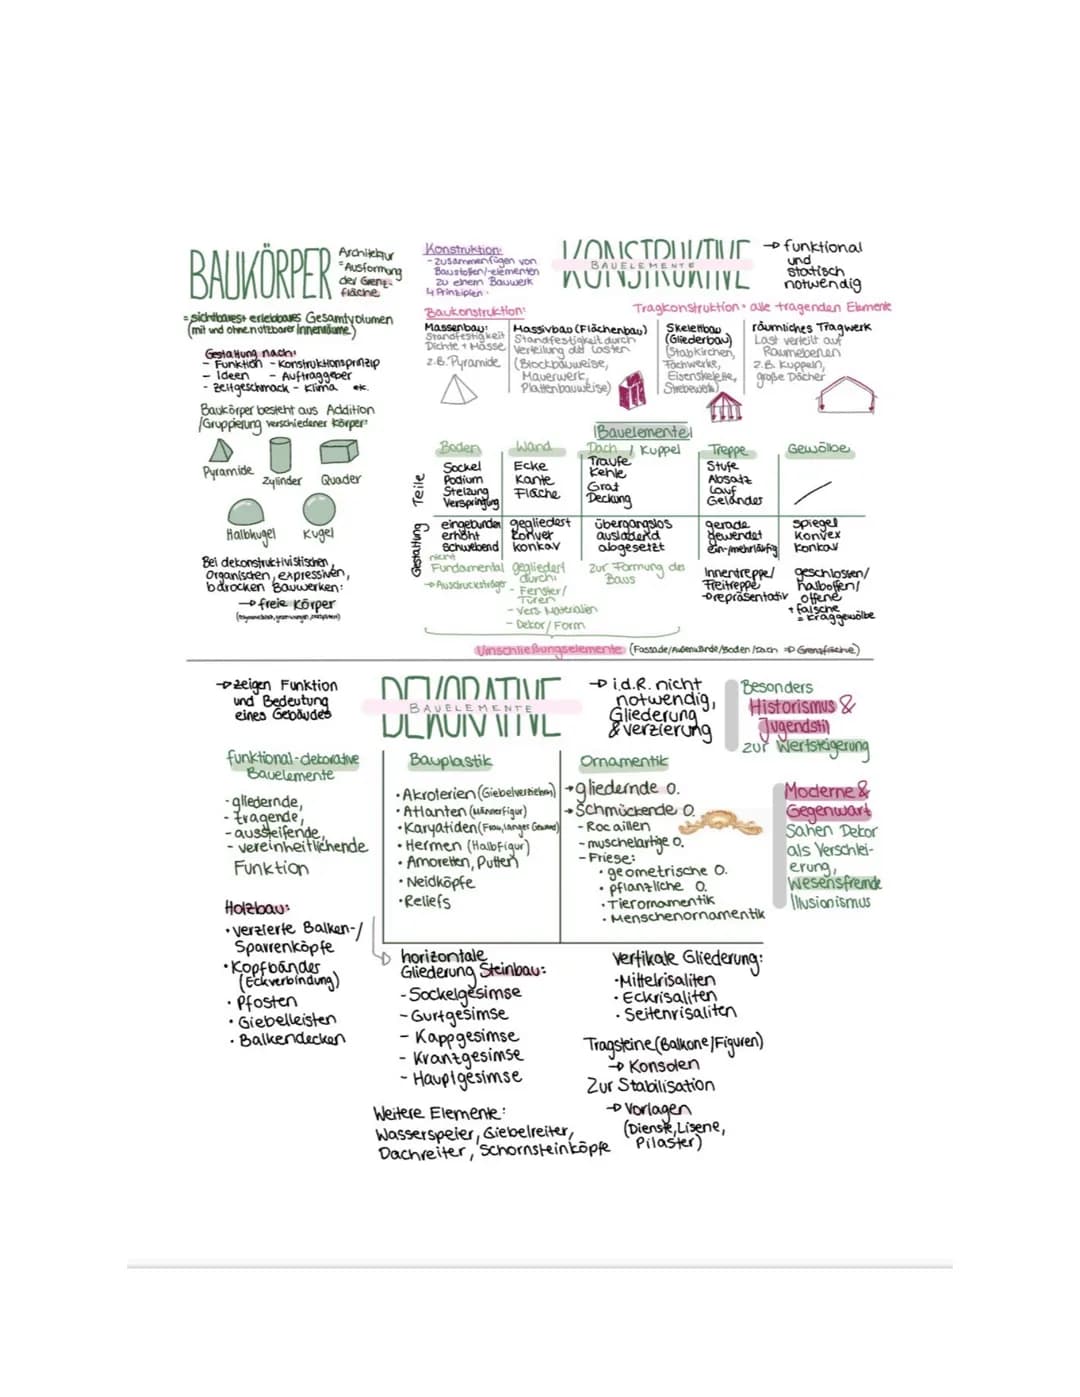 BAUKÖRPER
Architektur
= Ausformung
der Grenz-
fläche
= sichtbares + erlebbares Gesamtvolumen
(mit und ohne nutzbarer Innenräume)
Gestaltung nach:
- Funktion - Konstruktionsprinzip
- Ideen - Auftraggeber
- Zeitgeschmack - Klima etc.
Baukörper besteht aus Addition
/Gruppierung verschiedener Körper:
Pyramide
Zylinder
Quader
Halbkugel
Kugel
Bei dekonstruktivistischen,
Organischen, expressiven,
barocken Bauwerken:
→ freie Körper
Konstruktion:
- Zusammenfügen von
Baustoffen/-elementen
zu einem Bauwerk
4 Prinzipien:
KONSTRUKTIVE
BAUELEMENTE
→ funktional
und
statisch
notwendig
Baukonstruktion:
Tragkonstruktion = alle tragenden Elemente
Massenbau:
Standfestigkeit
Dichte + Masse
z.B. Pyramide
Massivbau (Flächenbau)
Standfestigkeit durch
Verteilung der Lasten
(Blockbauweise,
Mauerwerk,
Plattenbauweise)
Skelettbau
(Gliederbau)
(Stabkirchen,
Fachwerke,
Eisenskelette,
Strebewerk)
räumliches Tragwerk
Last verteilt auf
Raumebenen
z.B. Kuppeln,
große Dächer
Bauelemente
Boden
Wand
Dach / Kuppel
Treppe
Gewölbe
Teile
Sockel
Podium
Stelzung
Verspringung
Ecke
Kante
Fläche
Traufe
Kehle
Grat
Deckung
Stufe
Absatz
Lauf
Geländer
Gestaltung
eingebunden
erhöht
schwebend
gegliedert
konvex
konkav
übergangslos
ausladend
abgesetzt
gerade
gewendet
ein-/mehrläufig
Spiegel
Konvex
Konkav
nicht
Fundamental
→ Ausdrucksträger
gegliedert
durch:
- Fenster/
Türen
- vers. Materialien
- Dekor/Form
zur Formung des
Baus
Innentreppe/
Freitreppe
→ repräsentativ
geschlossen/
halboffen/
offene
+ falsche
= Kraggewölbe
Umschließungselemente (Fassade/Außenwände/Boden/Dach ⇒ Grenzfläche)
→ zeigen Funktion
und Bedeutung
eines Gebäudes
DEKORATIVE
BAUELEMENTE
→ i.d.R. nicht
notwendig,
Gliederung
& verzierung
Besonders
Historismus &
Jugendstil
zur Wertsteigerung
funktional-dekorative
Bauelemente
- gliedernde,
- tragende,
- aussteifende,
- vereinheitlichende
Funktion
Bauplastik
• Akroterien (Giebelverziehrn)
• Atlanten (Männerfigur)
• Karyatiden (Frau, langes Gewand)
• Hermen (Halbfigur)
• Amoretten, Putten
• Neidköpfe
• Reliefs
Ornamentik
→ gliedernde O.
→ Schmückende O.
- Rocaillen
- muschelartige O.
- Friese:
• geometrische O.
• pflanzliche O.
• Tierornamentik
• Menschenornamentik
Moderne &
Gegenwart
Sahen Dekor
als Verschlei-
erung,
Wesensfremde
Illusionismus
Holzbau:
• verzierte Balken-/
Sparrenköpfe
• Kopfbänder
(Eckverbindung)
• Pfosten
• Giebelleisten
• Balkendecken
horizontale
Gliederung Steinbau:
- Sockelgesimse
- Gurtgesimse
- Kappgesimse
- Kranzgesimse
- Hauptgesimse
vertikale Gliederung:
• Mittelrisaliten
• Eckrisaliten
• Seitenrisaliten
Tragsteine (Balkone/Figuren)
→ Konsolen
Zur Stabilisation
→ Vorlagen
(Dienste, Lisene,
Pilaster)
Weitere Elemente:
Wasserspeier, Giebelreiter,
Dachreiter, Schornsteinköpfe